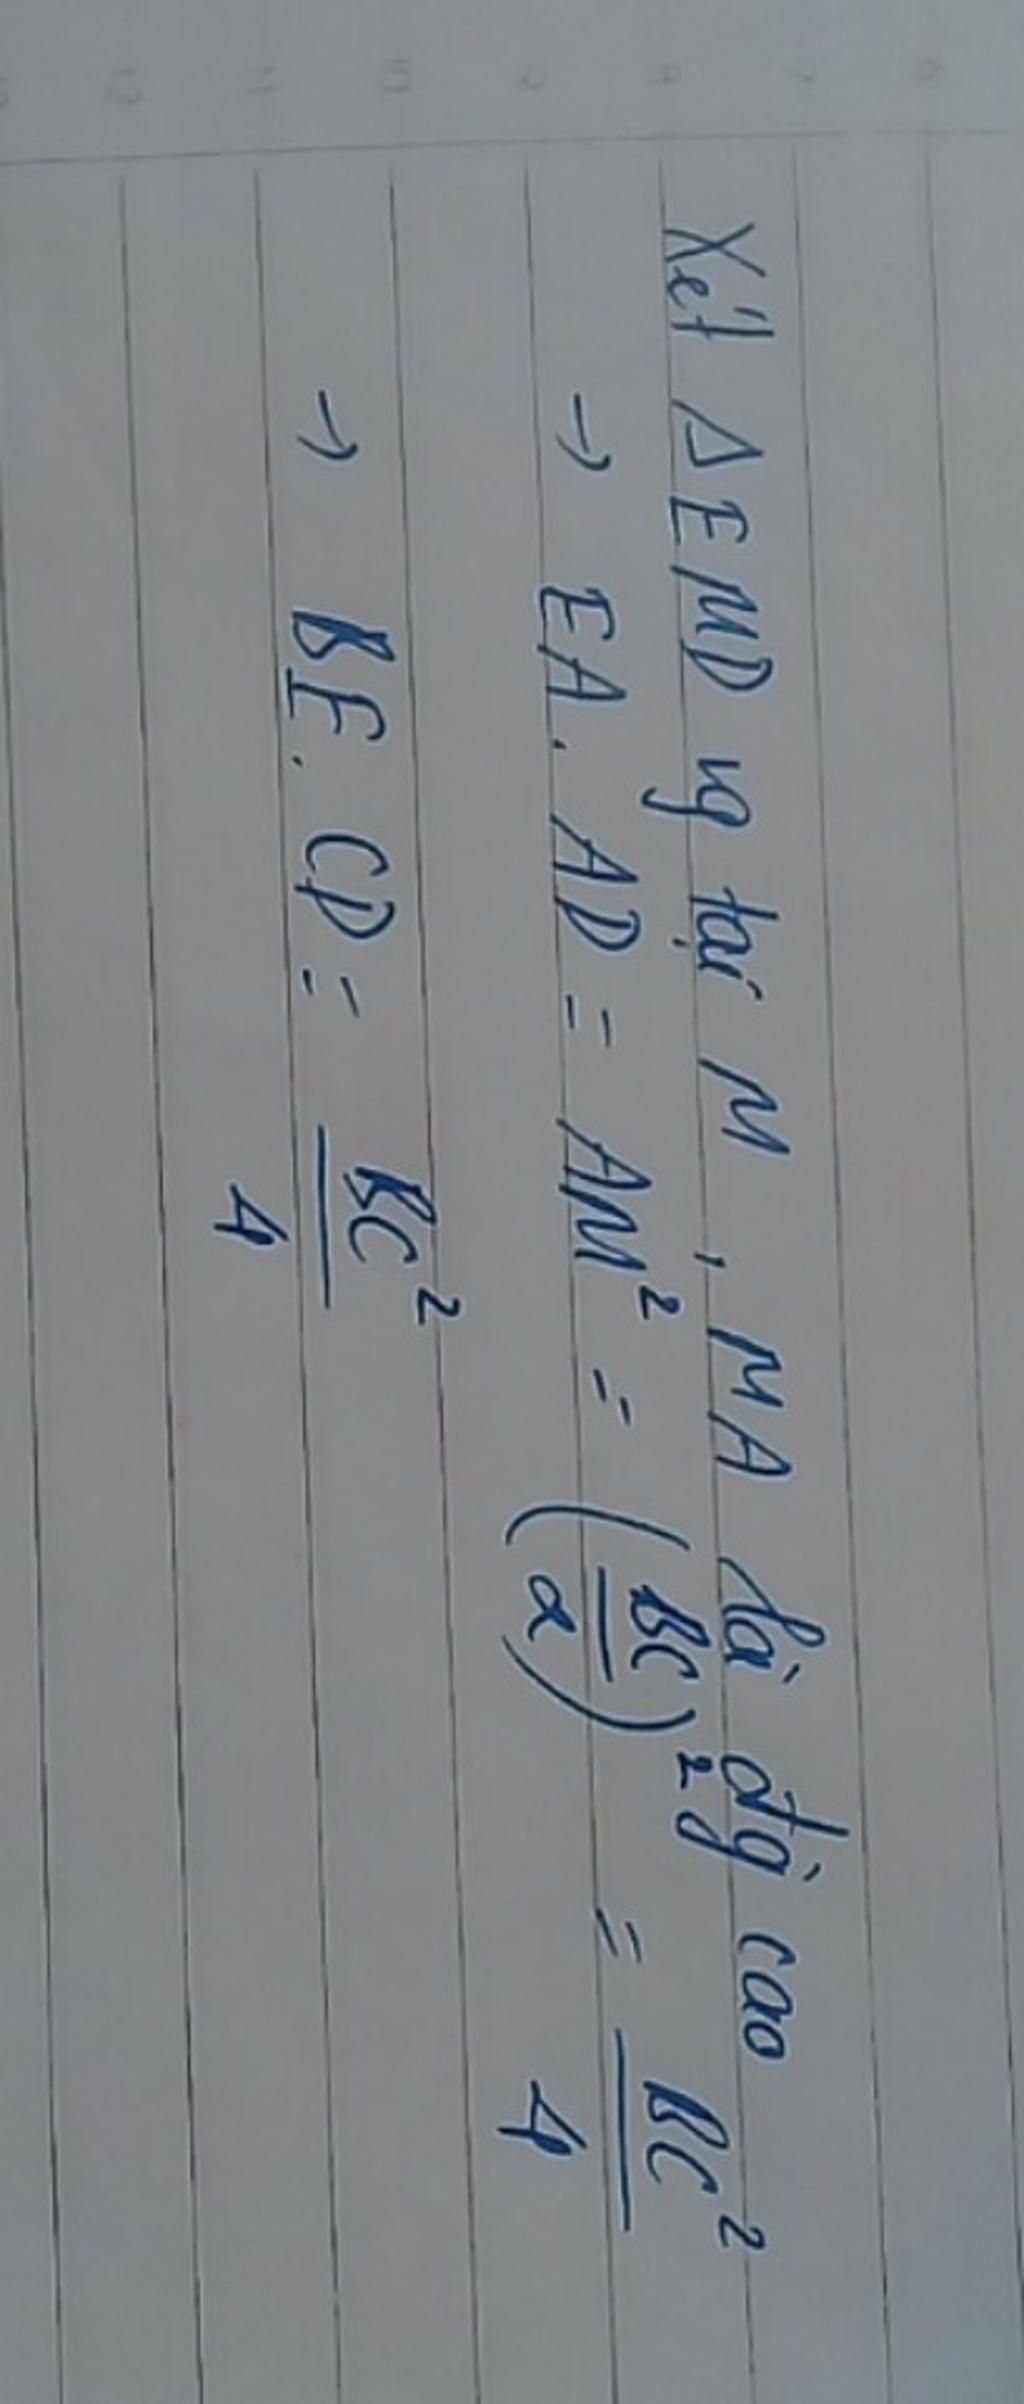 Xét Δ EMD vg tại M, MA là đg cao
→ EA. AD = AM² = (BC/2)² = BC²/4
→ BE. CD = BC²/4